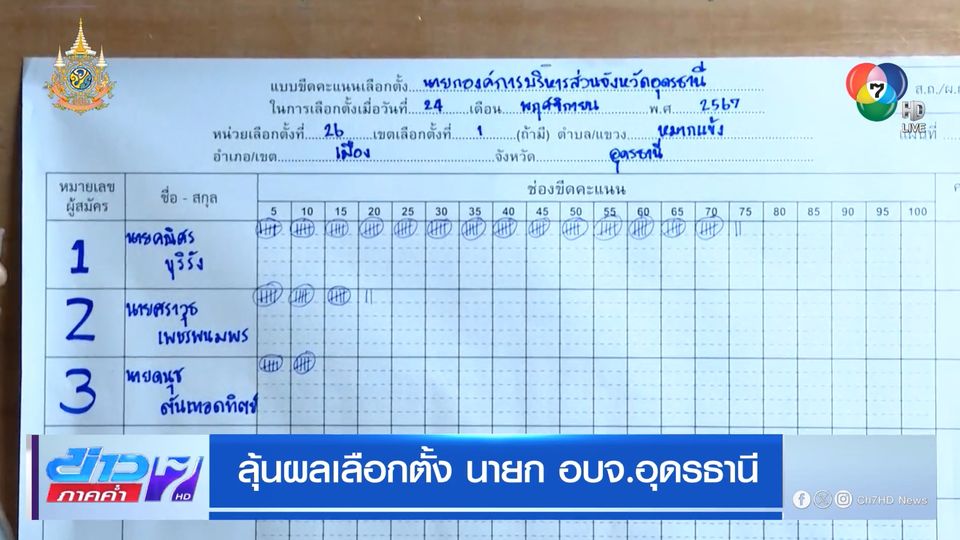 แบบขีดคะแนนเลือกตั้ง นายกองค์การบริหารส่วนจังหวัดอุดรธานี
ในการเลือกตั้งเมื่อวันที่ 24 เดือน พฤศจิกายน พ.ศ 2567
หน่วยเลือกตั้งที่ 26 เขตเลือกตั้งที่ 1 (ถ้ามี) ตำบล/แขวง หมากแข้ง
อำเภอ/เขต เมือง จังหวัด อุดรธานี
ส.ถ./ผ.ถ
แผ่นที่
7
HD
LIVE
หมายเลข
ผู้สมัคร
ชื่อ - สกุล
ช่องขีดคะแนน
5 10 15 20 25 30 35 40 45 50 55 60 65 70 75 80 85 90 95 100
1 นายคณิศร
ขุริรัง
2 นายศราวุธ
เพชรพนมพร
3 นายดนุช
ตันเทอดทิตย์
ข่าว 7 HD
ภาคค่ำ
ลุ้นผลเลือกตั้ง นายก อบจ.อุดรธานี
Ch7HD News